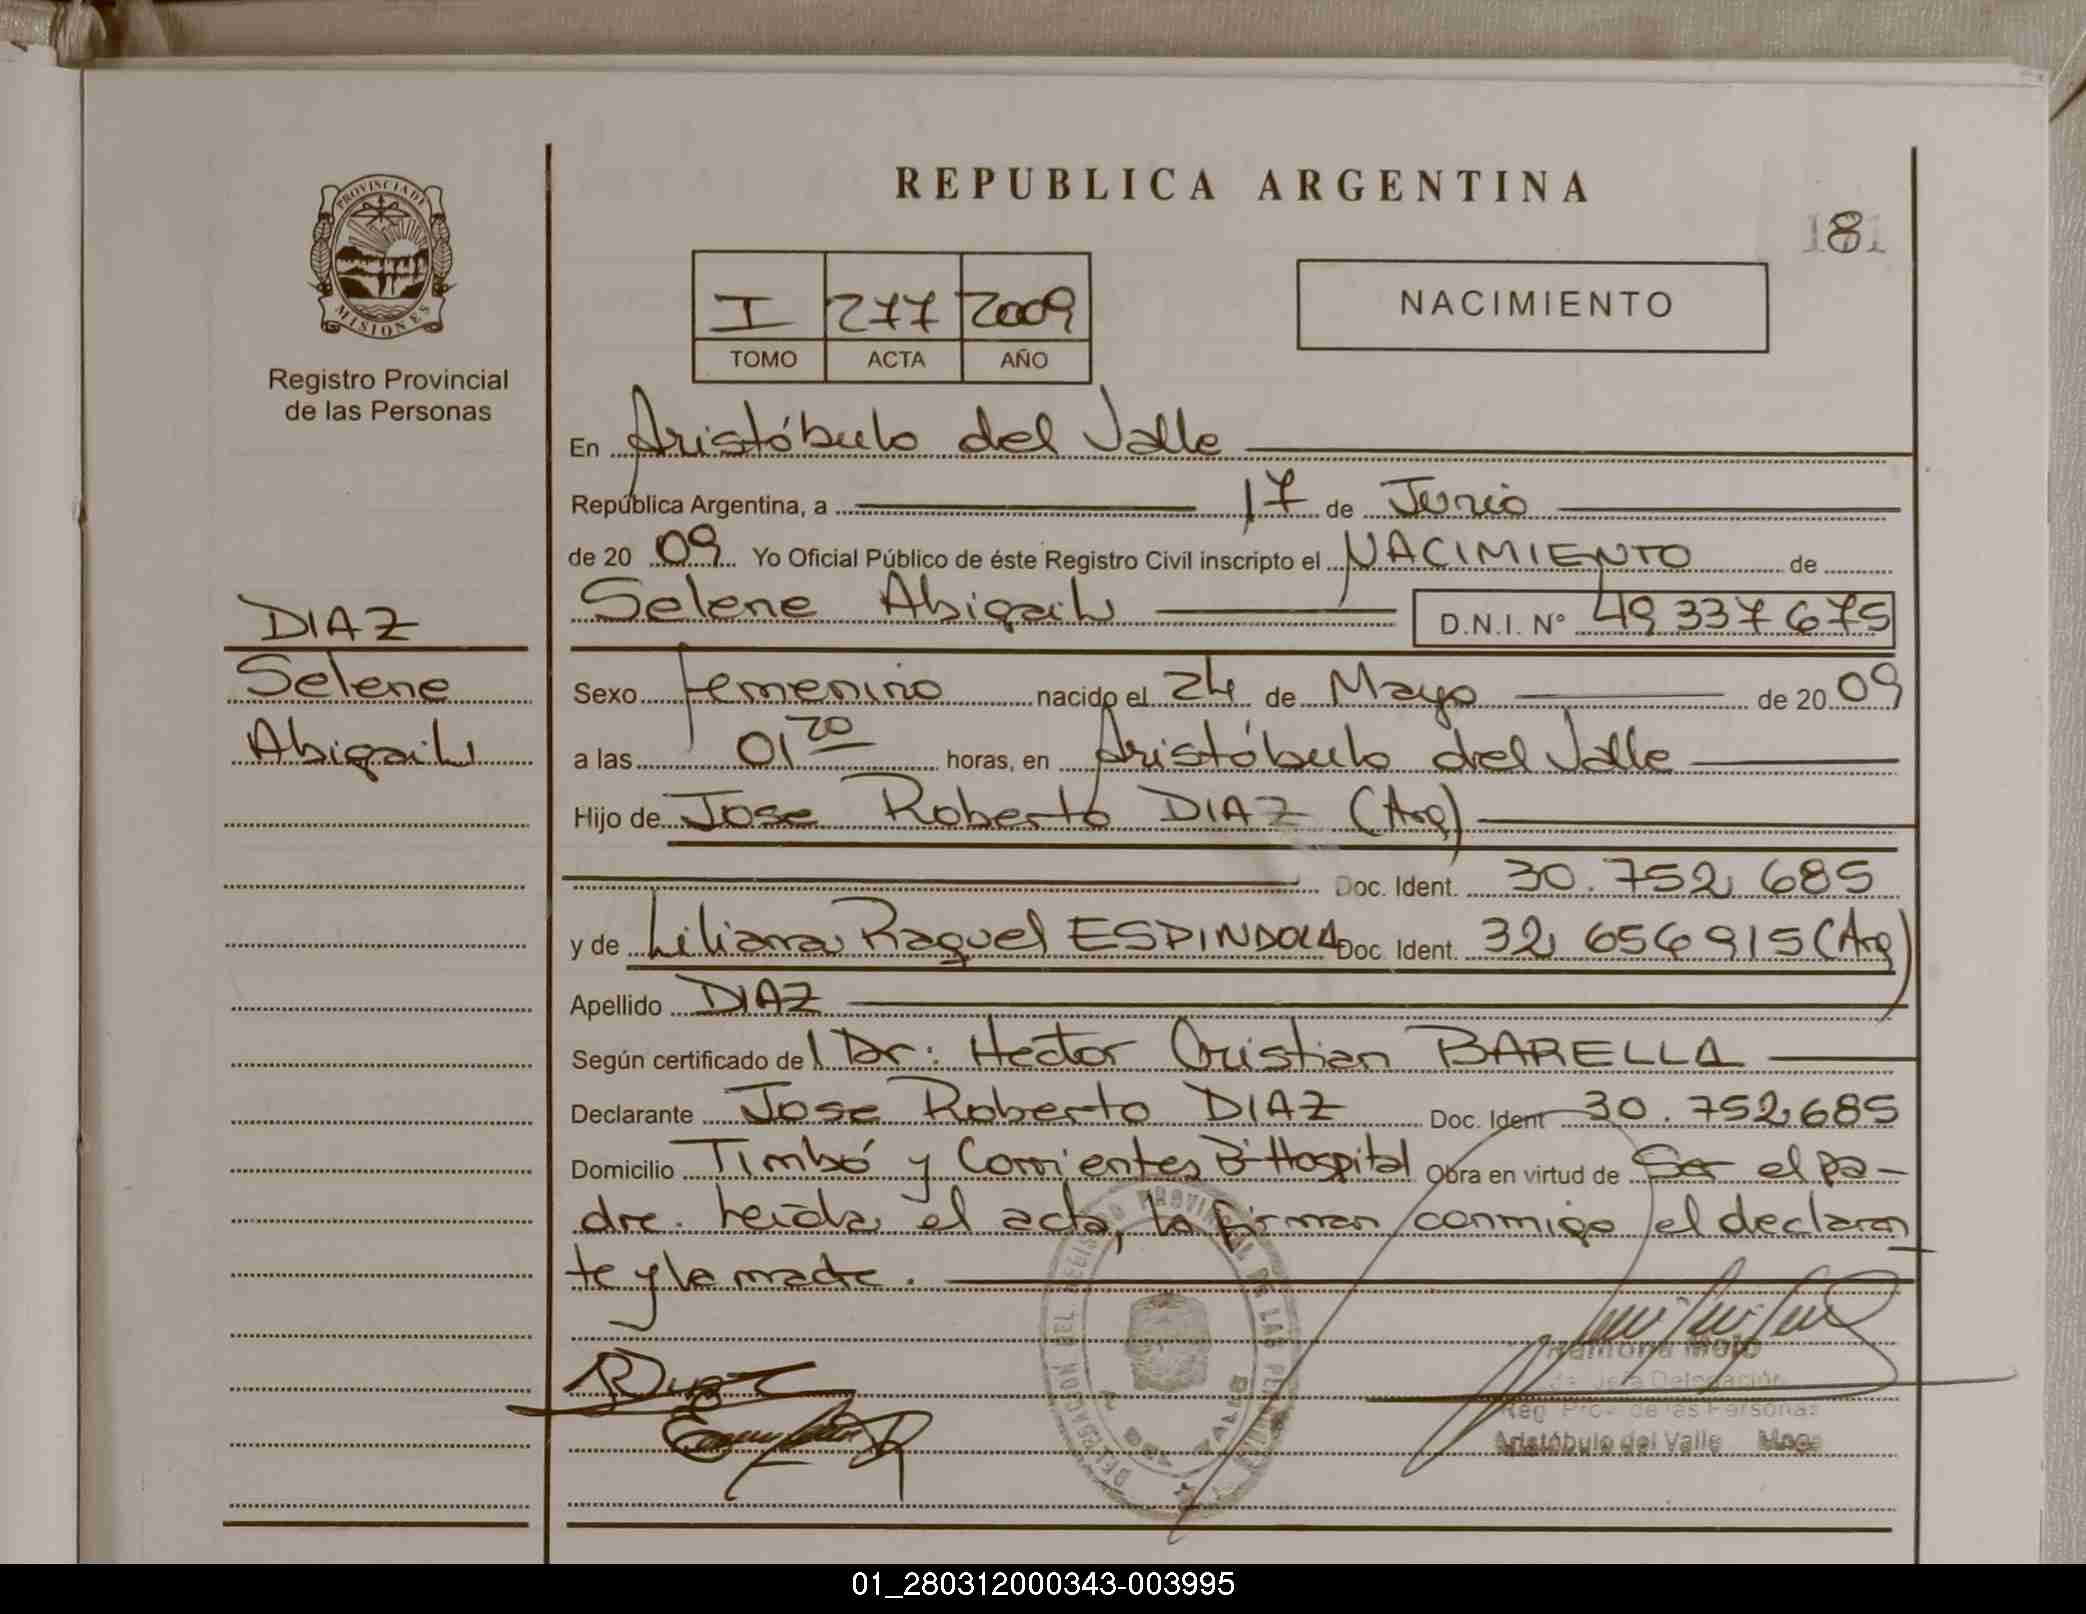 PROVINCIA DE
MISIONES
Registro Provincial
de las Personas
DIAZ
Selene
Abigail
REPUBLICA ARGENTINA
181
I 277 2009
TOMO ACTA AÑO
NACIMIENTO
En Aristóbulo del Valle
República Argentina, a 17 de Junio
de 2009 Yo Oficial Público de éste Registro Civil inscripto el NACIMIENTO de
Selene Abigail D.N.I. N° 49 337 675
Sexo femenino nacido el 24 de Mayo de 2009
a las 01 20 horas, en Aristóbulo del Valle
Hijo de Jose Roberto DIAZ (Arg)
Doc. Ident. 30.752 685
y de Liliana Raquel ESPINDOLA Doc. Ident. 32 656 915 (Arg)
Apellido DIAZ
Según certificado del Dr: Hector Cristian BARELLA
Declarante Jose Roberto DIAZ Doc. Ident 30.752685
Domicilio Timbó y Corrientes Bº Hospital Obra en virtud de Ser el pa-
dre. Leida el acta, la firman conmigo el declaran
te y la madre.
Ramona
Delegación
Reg. Prov. de las Personas
Aristóbulo del Valle Mnes
01_280312000343-003995